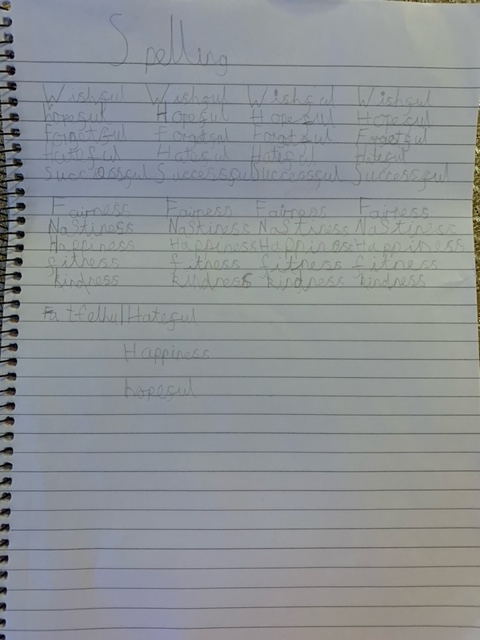 Spelling
Wishful Wishful Wishful Wishful
hopeful Hopeful Hopeful Hopeful
Hateful Hateful Hateful Hateful
Successful Successful Successful Successful
Fairness Fairness Fairness Fairness
NaStiness NaStiness NaStiness NaStiness
Happiness Happiness Happiness
fitness fitness fitness fitness
kindness kindness kindness kindness
Hateful
Happiness
hopeful